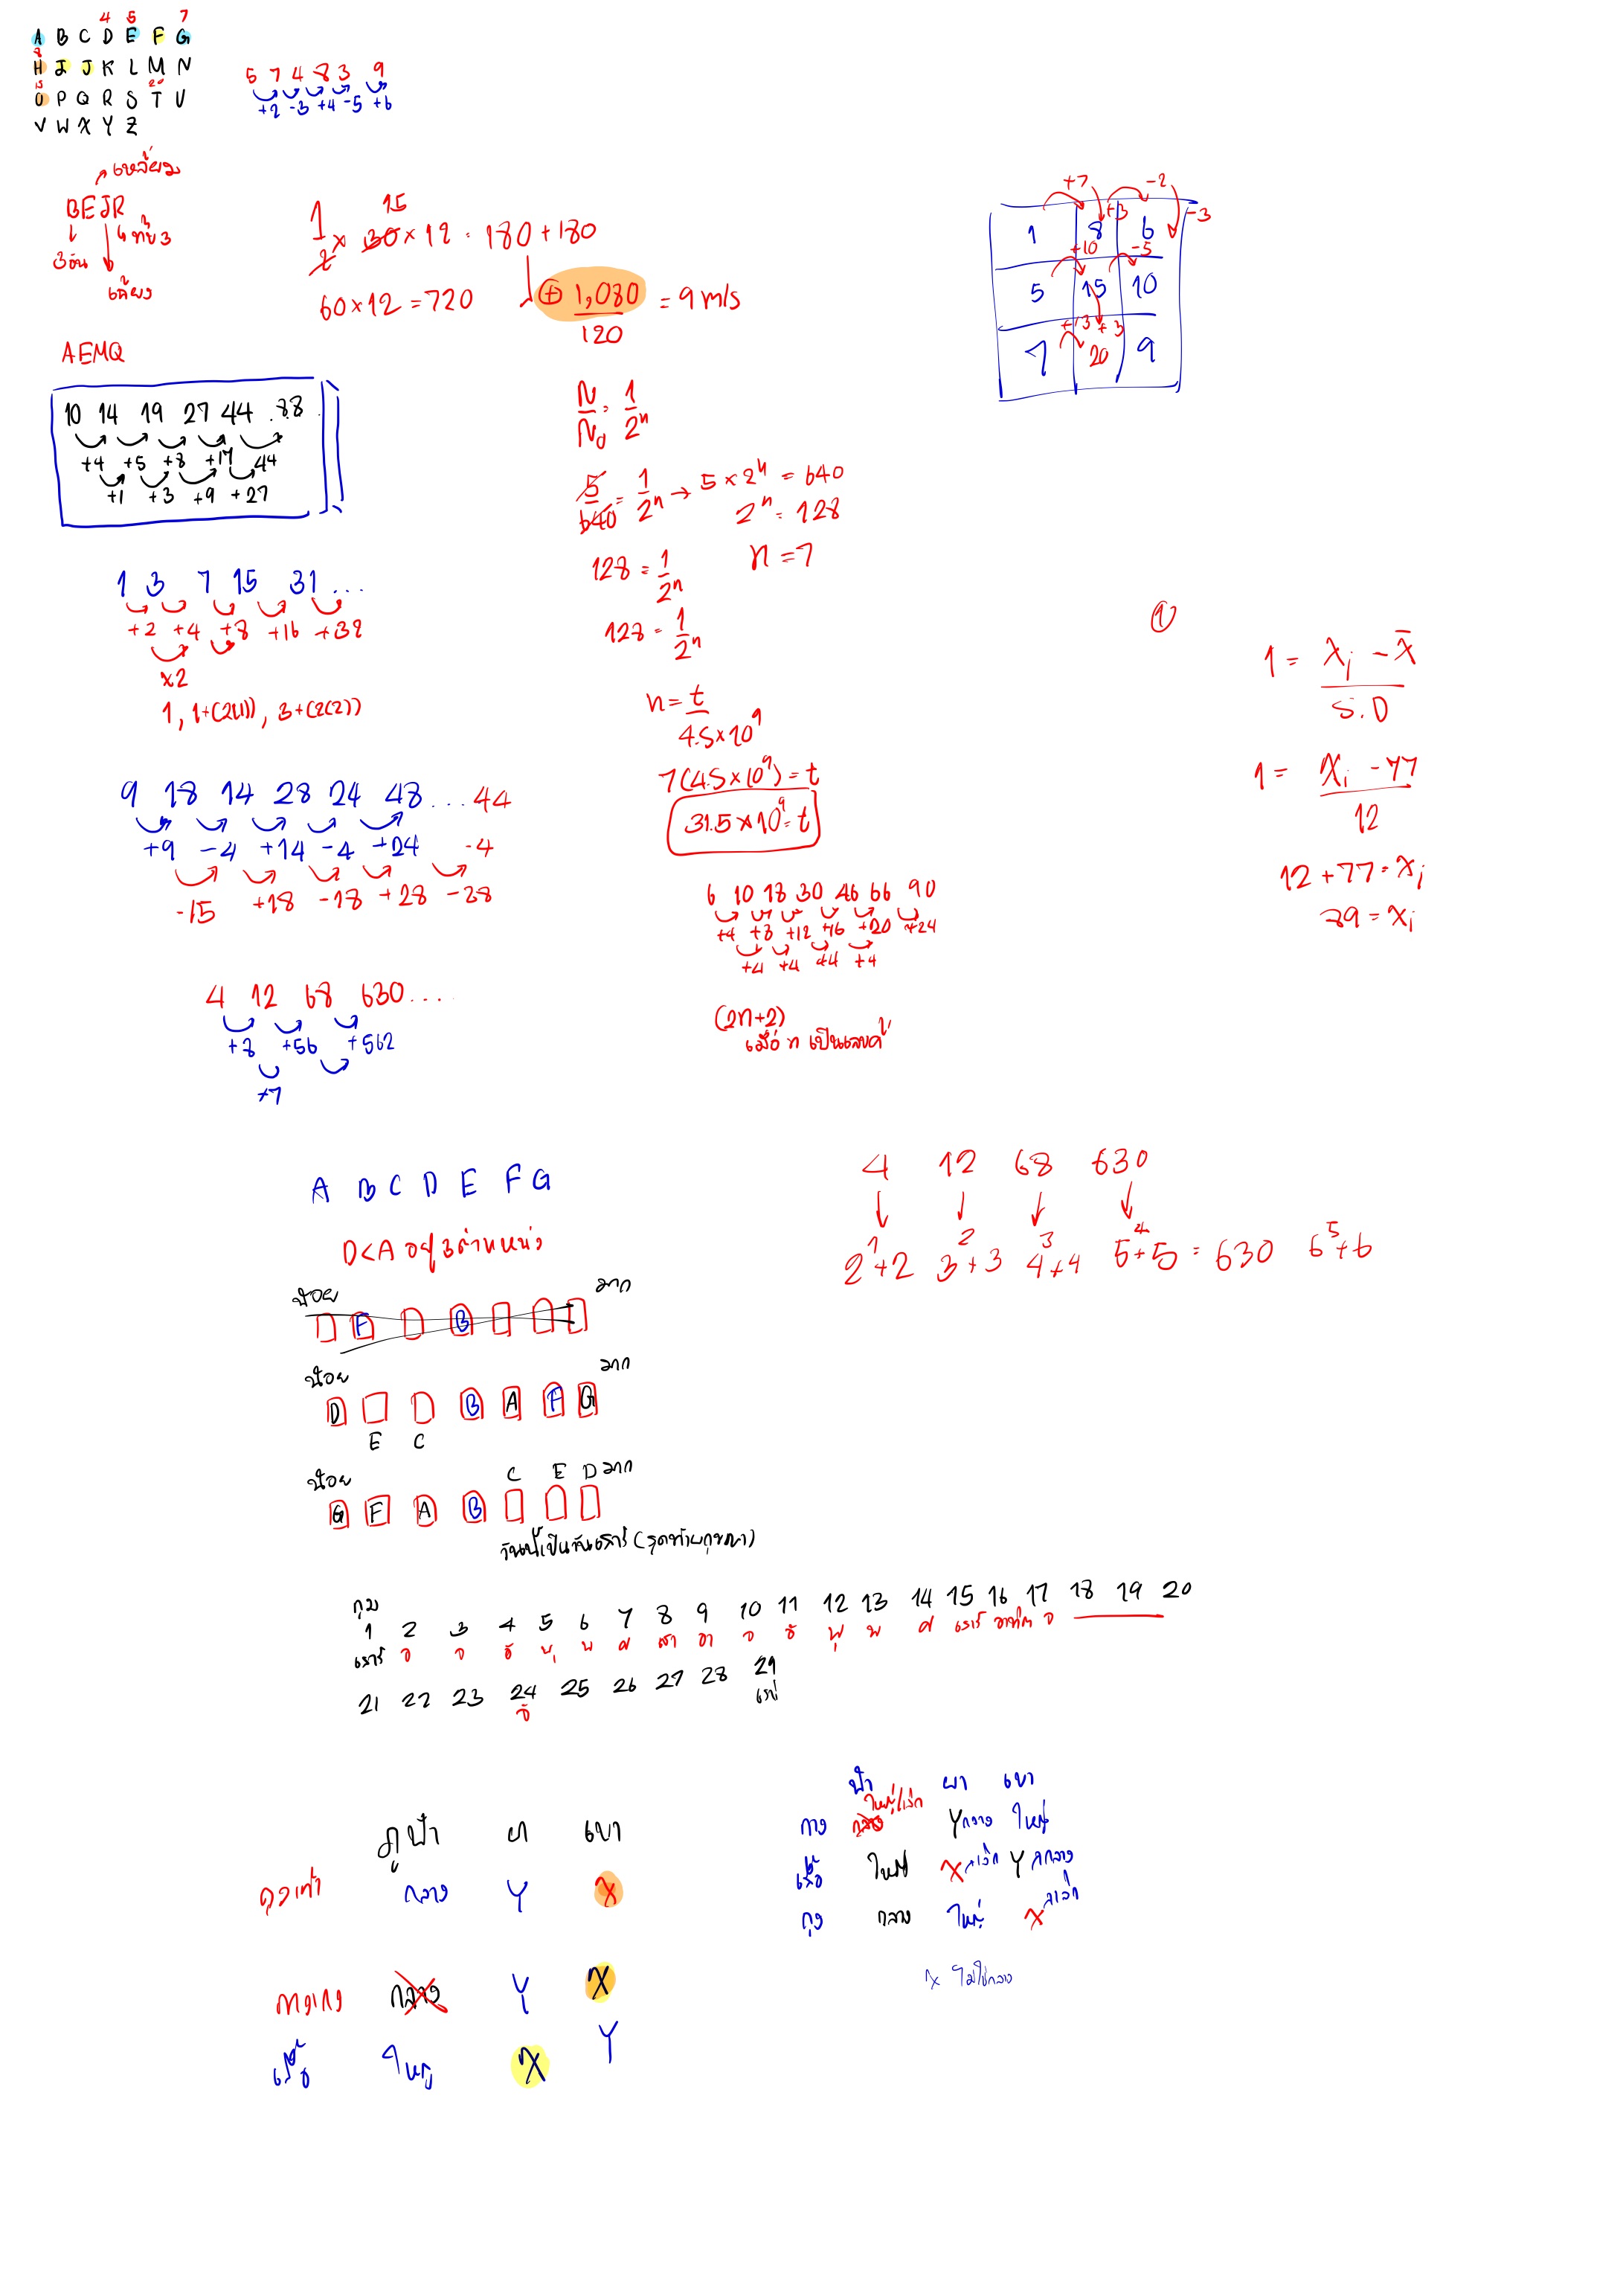 4 5 7
A B C D E F G
8
H I J K L M N
15 20
O P Q R S T U
V W X Y Z
5 7 4 8 3 9
+2 -3 +4 -5 +6
เหลี่ยม
BEJR
3 อัน
AEMQ
10 14 19 27 44 88
+4 +5 +8 +17 44
+1 +3 +9 +27
1 3 7 15 31 ...
+2 +4 +8 +16 +32
x2
1, 1+(2(1)), 3+(2(2))
9 18 14 28 24 48 ... 44
+9 -4 +14 -4 +24 -4
-15 +18 -18 +28 -28
4 12 68 630 ....
+8 +56 +562
×7
15
1/2 × 30 × 12 = 180 + 180
60 × 12 = 720
+ 1,080 / 120 = 9 m/s
N/N0 = 1/2^n
5/640 = 1/2^n → 5 × 2^n = 640
2^n = 128
128 = 1/2^n
n = 7
128 = 1/2^n
n = t / 4.5×10^9
7(4.5×10^9) = t
31.5×10^9 = t
6 10 18 30 46 66 90
+4 +8 +12 +16 +20 +24
+4 +4 +4 +4
(2n+2)
เมื่อ n เป็นเลขคี่
+7 -2
1 8 6
+3 -3
+10 -5
5 15 10
+13 +3
7 20 9
1
1 = xi - x̄ / S.D
1 = xi - 77 / 12
12 + 77 = xi
89 = xi
A B C D E F G
D<A อยู่ 3 ตำแหน่ง
น้อย มาก
F B
น้อย มาก
D B A F G
E C
น้อย C E D มาก
G F A B
4 12 68 630
2^1+2 3^2+3 4^3+4 5^4+5 = 630 6^5+6
กุม
1 2 3 4 5 6 7 8 9 10 11 12 13 14 15 16 17 18 19 20
เสาร์ อ จ อ พุ พ ศ สา อา จ อ พุ พ ศ เสาร์ อาทิตย์ จ
21 22 23 24 25 26 27 28 29
อ
ภูฟ้า ผา เขา
กลาง Y X
กลาง Y X
เสื้อ ใหญ่ X Y
ฟ้า ผา เขา
ใหญ่/เล็ก
กาง กลาง Y กลาง ใหญ่
เสื้อ ใหญ่ X เล็ก Y กลาง
กุง กลาง ใหญ่ X เล็ก
X ไม่ใช่กลาง